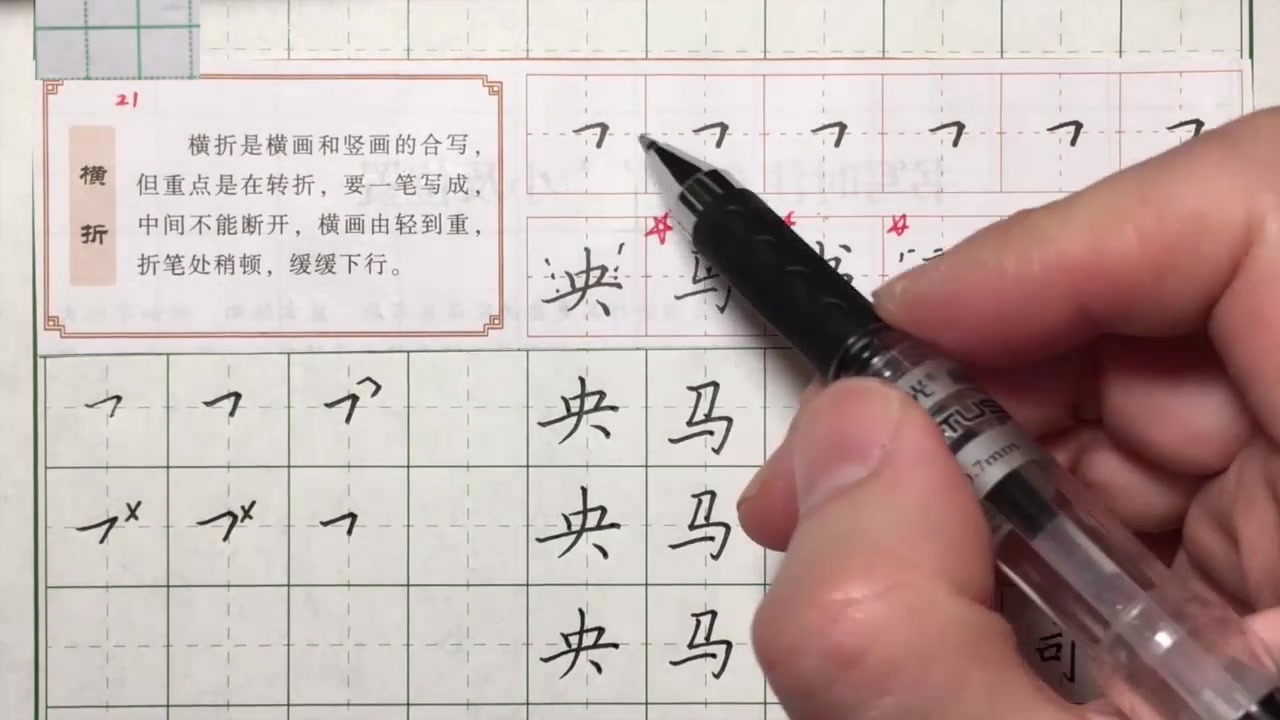 21
横折
横折是横画和竖画的合写，
但重点是在转折，要一笔写成，
中间不能断开，横画由轻到重，
折笔处稍顿，缓缓下行。
㇕ ㇕ ㇕ ㇕ ㇕ ㇕
央 马
㇕ ㇕ ㇕ 央 马
㇕x ㇕x ㇕ 央 马
央 马 司
0.7mm